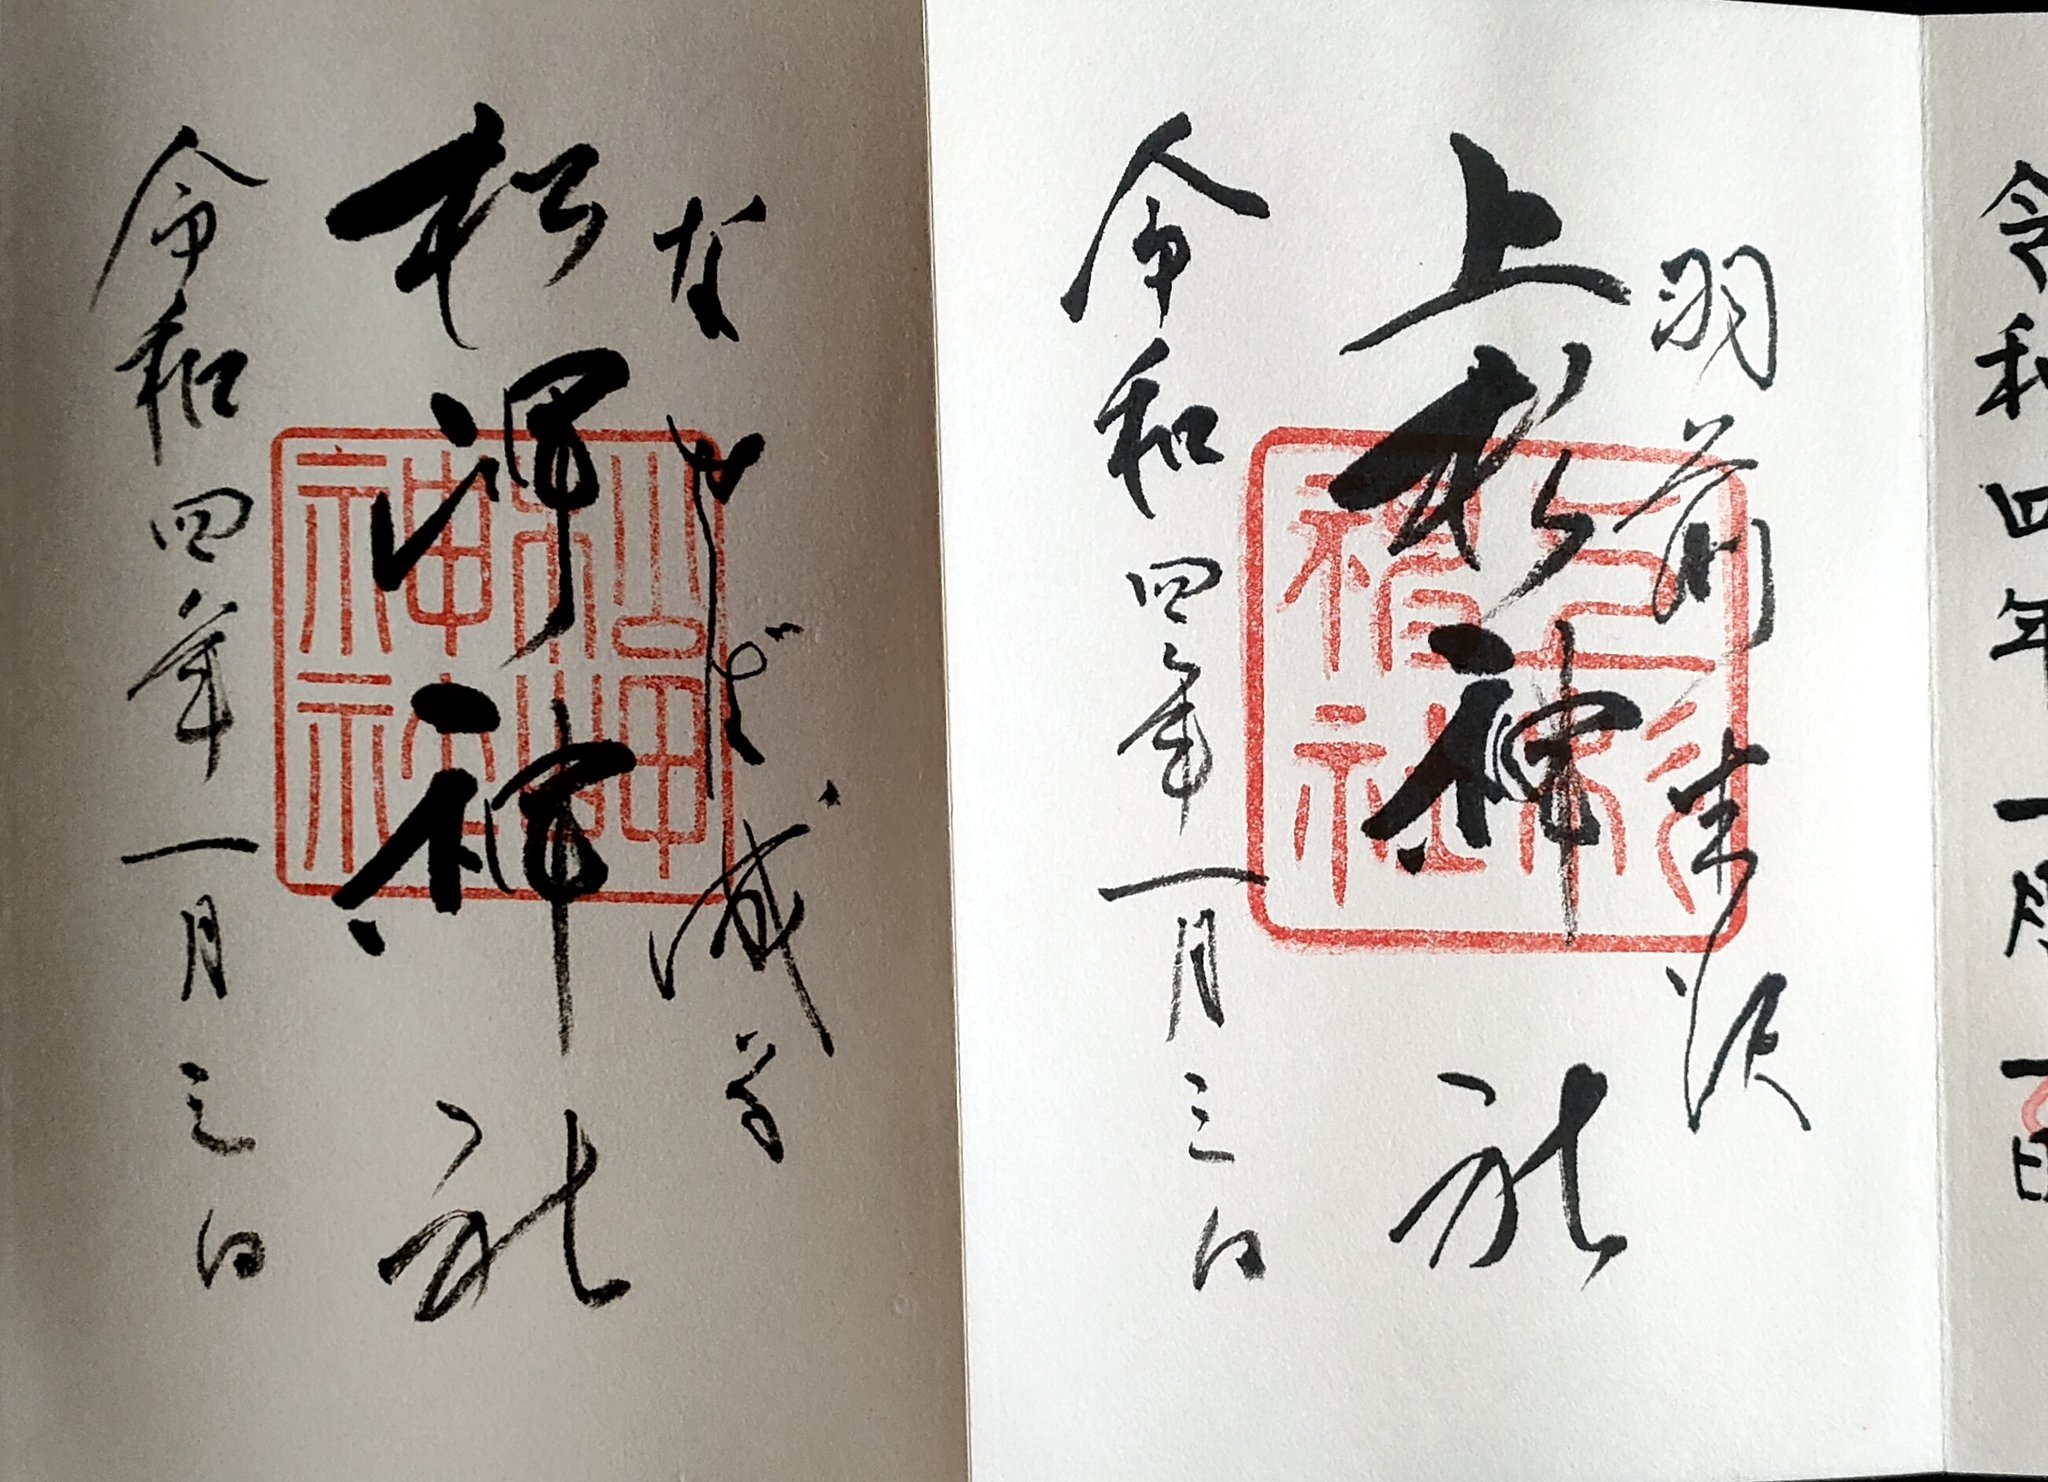 令和四年一月一日
羽前米沢
上杉神社
令和四年一月三日
なせば成る
松岬神社
松岬神社
令和四年一月三日